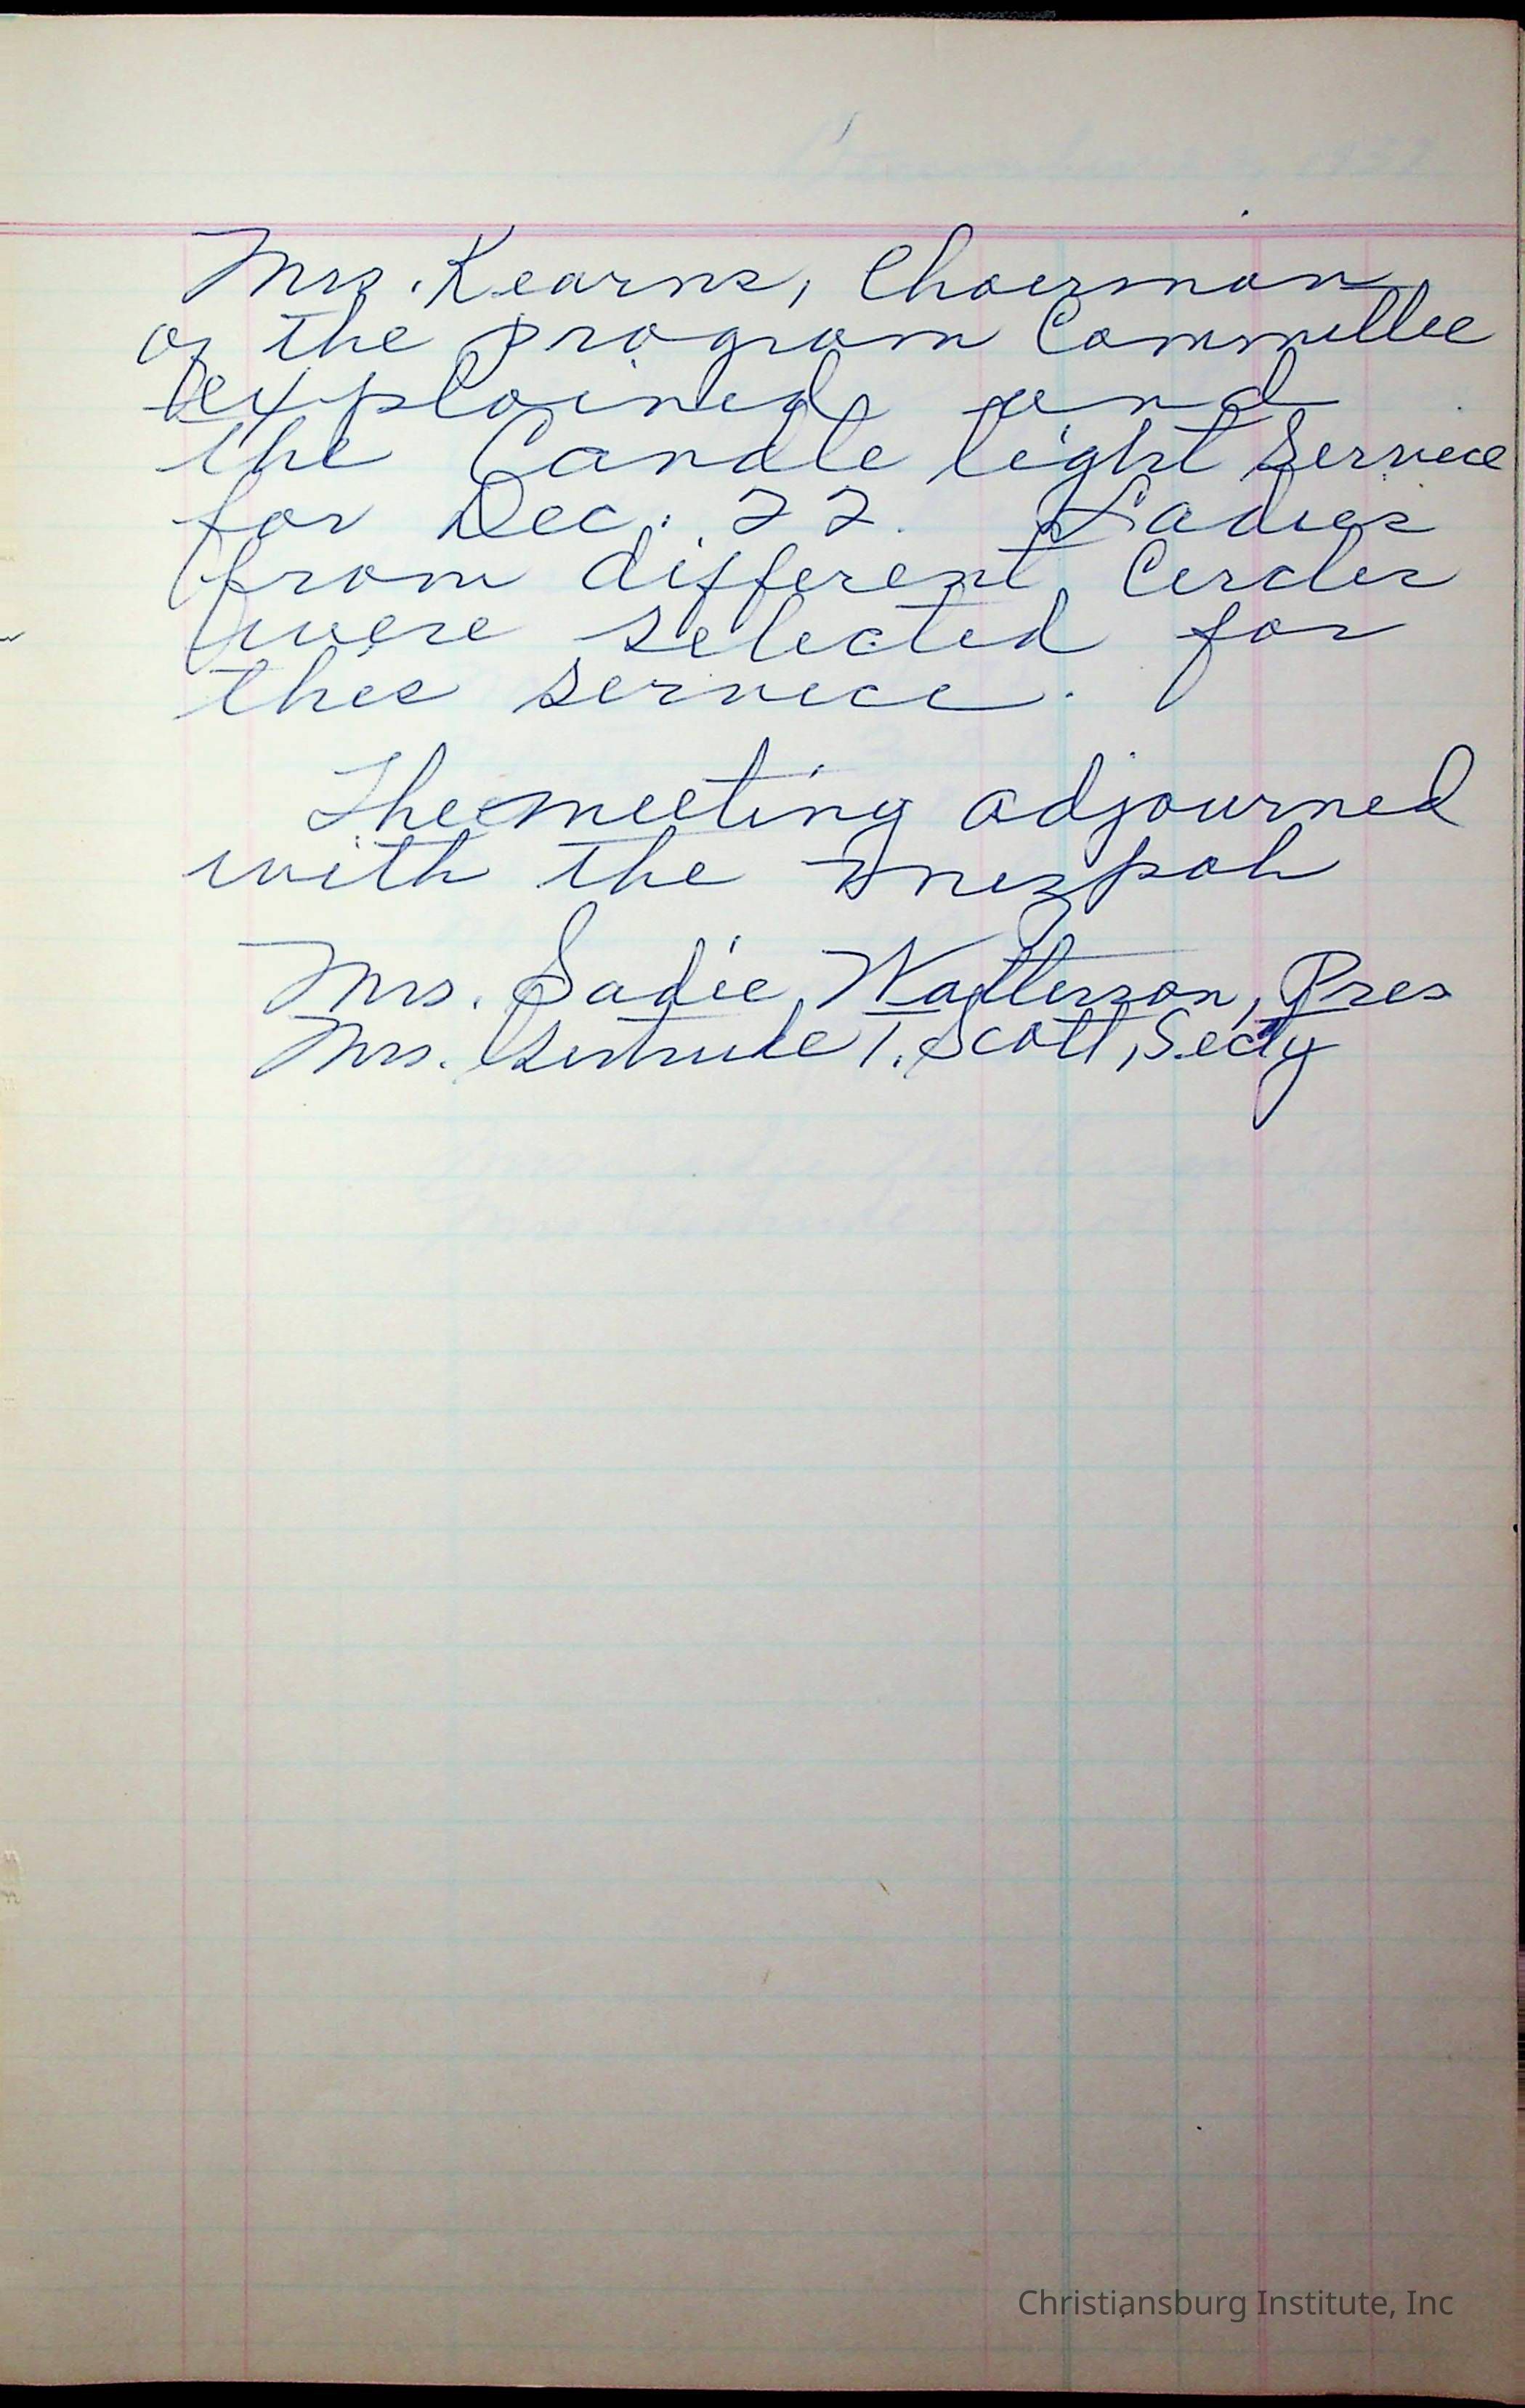 Mrs. Kearns, Chairman
of the program Committee
explained and
the Candle light Service
for Dec. 22. Ladies
from different Circles
were selected for
this service.
The meeting adjourned
with the mizpah
Mrs. Sadie Watterson, Pres
Mrs. Gertrude T. Scott, Secty
Christiansburg Institute, Inc